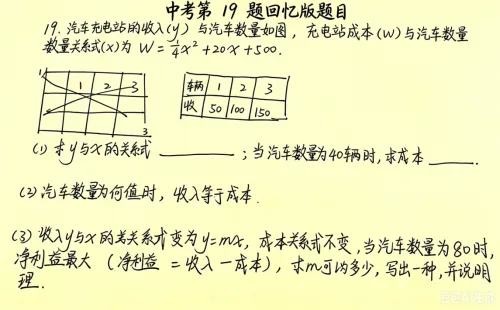 中考第 19 题回忆版题目
19. 汽车充电站的收入(y) 与汽车数量如图，充电站成本(W)与汽车数量
数量关系式(x)为 W=¼x²+20x+500.
1 2 3
3
车辆 1 2 3
收 50 100 150
(1) 求y与x的关系式 ______；当汽车数量为40辆时, 求成本 ____.
(2) 汽车数量为何值时, 收入等于成本.
(3) 收入y与x的关系式变为y=mx, 成本关系式不变, 当汽车数量为80时,
净利益最大 (净利益 = 收入-成本), 求m可为多少, 写出一种, 并说明
理.